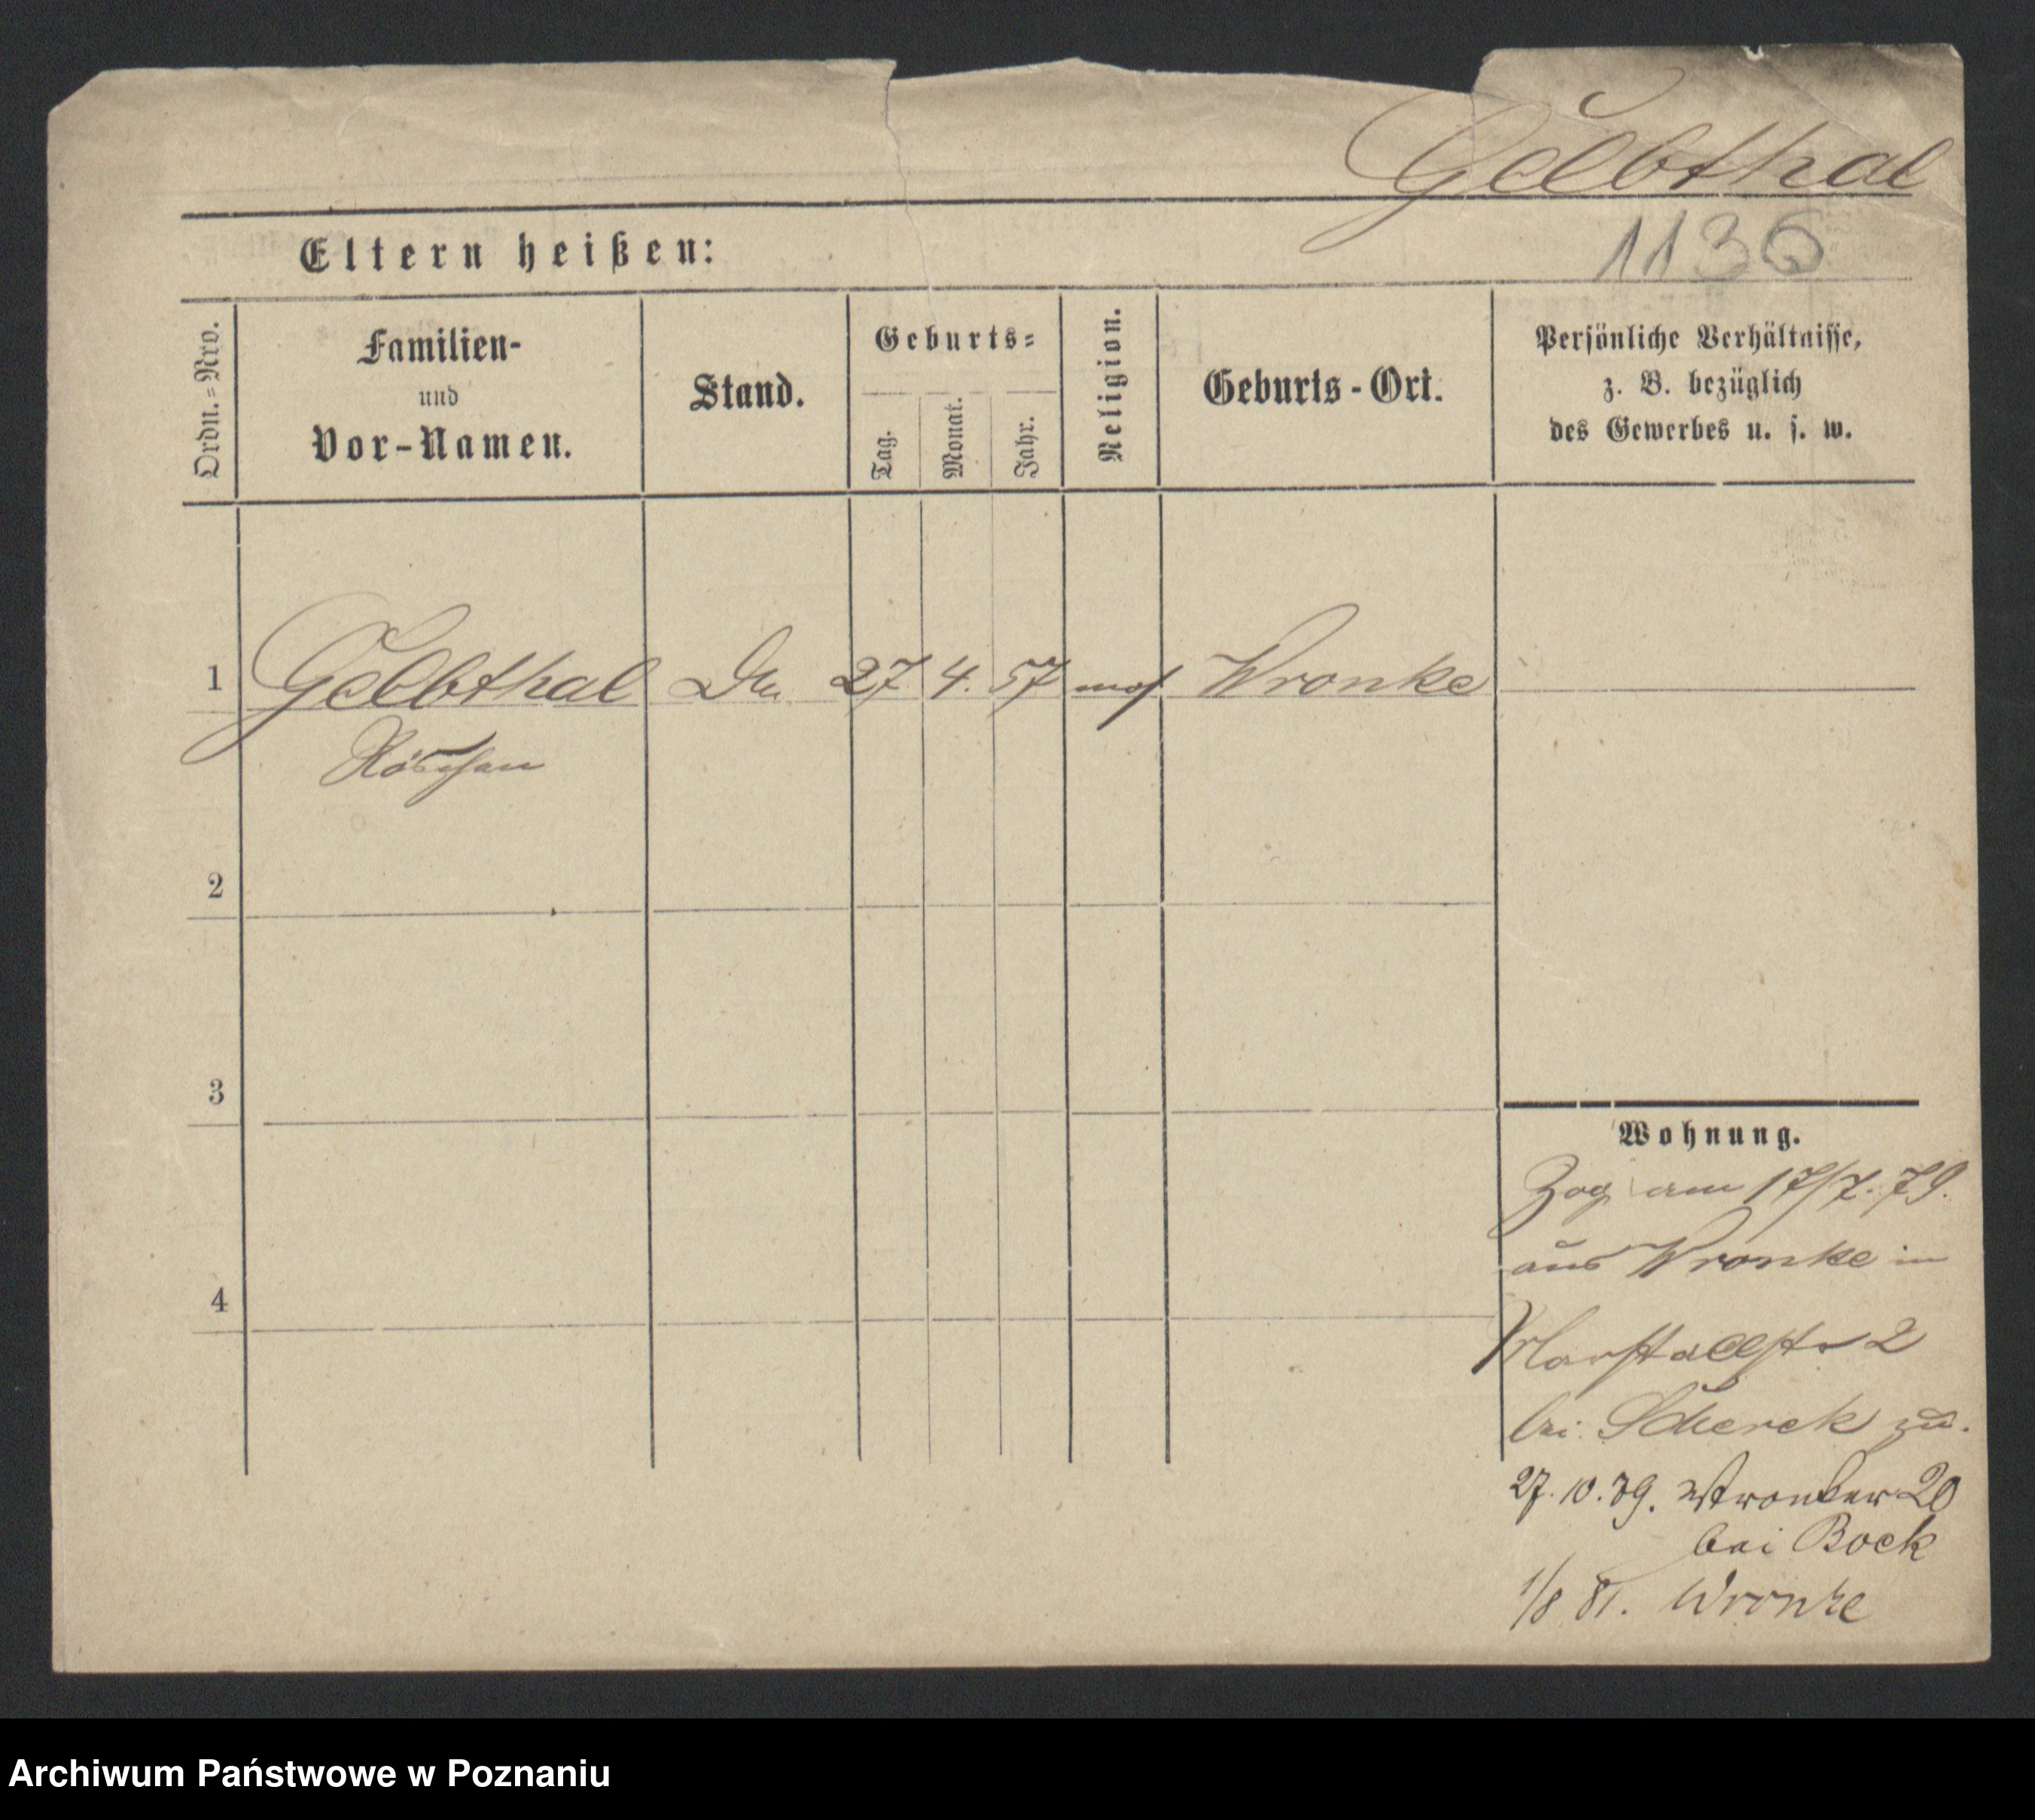 Gelbthal
1136
Eltern heißen:
Ordn.=Nro.
Familien-
und
Vor-Namen.
Stand.
Geburts=
Tag.
Monat.
Jahr.
Religion.
Geburts-Ort.
Persönliche Verhältnisse,
z. B. bezüglich
des Gewerbes u. s. w.
1 Gelbthal 27 4. 57 mos Wronke
Röschen
2
3
4
Wohnung.
Zog am 17/7. 79.
aus Wronke in
Marstallstr 2
bei Scherek zu.
27. 10. 79. Wronker 20
bei Bock
1/8 81. Wronke
Archiwum Państwowe w Poznaniu